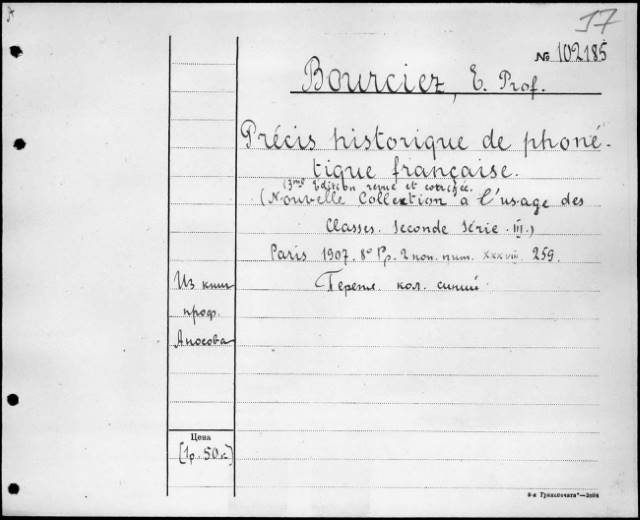 17
№ 102185
Bourciez, E. Prof.
Précis historique de phoné-
tique française.
(3me Edition revue et corrigée.
(Nouvelle Collection à l'usage des
Classes. Seconde Série. III.)
Paris 1907. 8° Pp. 2 non. num. XXXVIII 259.
Из книг
проф.
Аносова
Перепл. кол. синий
Цена
[1р. 50к]